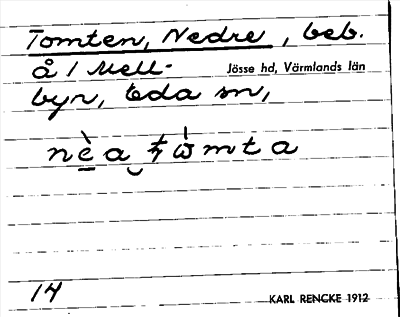 Tomten, Nedre, beb.
å 1 Mell-
Jösse hd, Värmlands län
byn, Eda sn,
14
KARL RENCKE 1912